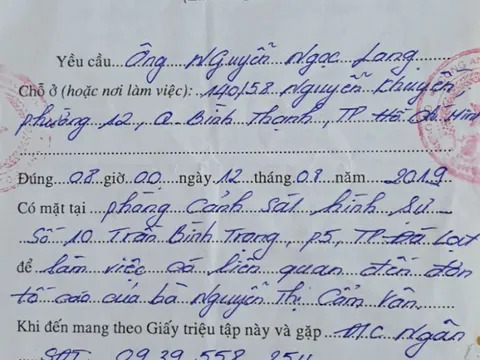 Yêu cầu....Ông Nguyễn Ngọc Lang
Chỗ ở (hoặc nơi làm việc): 140/58 Nguyễn Khuyến,
phường 12, Q. Bình Thạnh, TP Hồ Chí Minh
Đúng...08...giờ..00...ngày...12...tháng..08...năm...2019
Có mặt tại phòng Cảnh sát hình sự
Số 10 Trần Bình Trọng, p5, TP Đà Lạt
để làm việc có liên quan đến đơn
tố cáo của bà Nguyễn Thị Cẩm Vân.
Khi đến mang theo Giấy triệu tập này và gặp đ.c Ngân
SĐT 0939 558